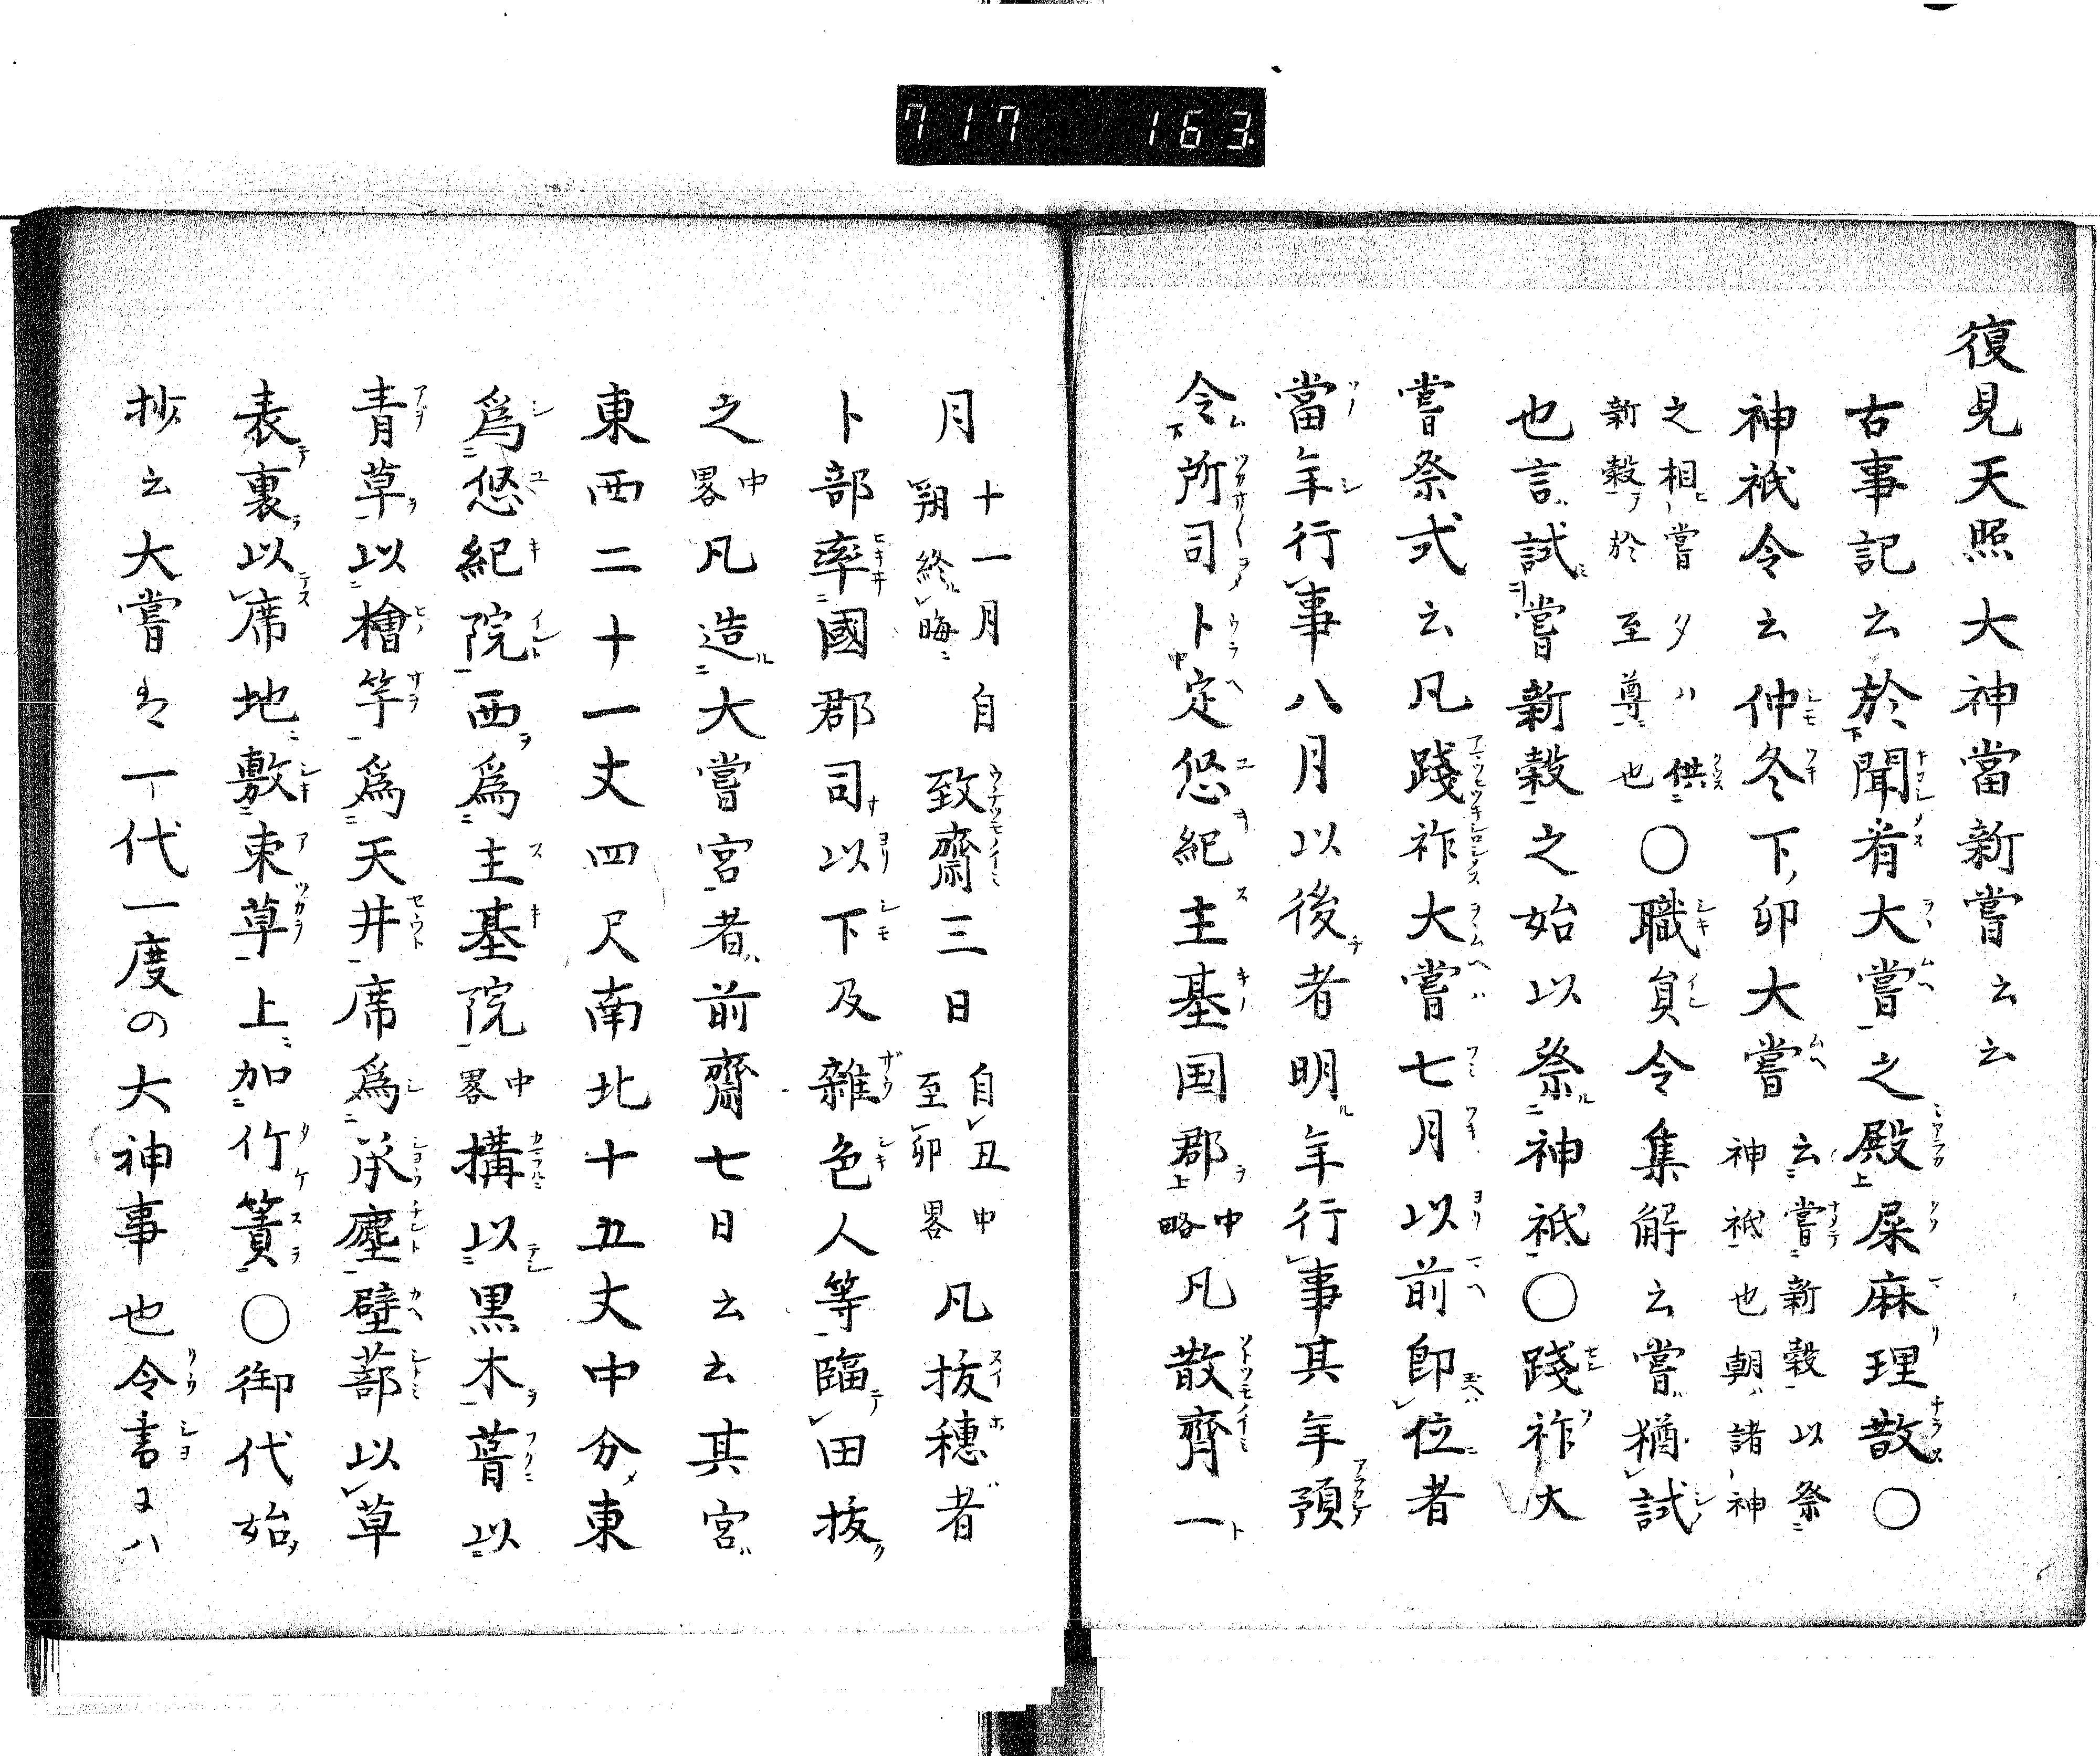 717 163
復見天照大神當新嘗云云
古事記云於聞看大嘗之殿屎麻理散〇
神祇令云仲冬下卯大嘗云嘗新穀以祭神祇也朝諸神
之相嘗夕ハ供新穀於至尊也〇職員令集解云嘗猶試
也言試嘗新穀之始以祭神祇〇踐祚大
嘗祭式云凡踐祚大嘗七月以前即位者
當年行事八月以後者明年行事其年預
令所司卜定悠紀主基国郡中略凡散齊一
月十一月自朔終晦致齋三日自丑至卯中畧凡抜穂者
卜部率國郡司以下及雜色人等臨田抜
之中畧凡造大嘗宮者前齋七日云云其宮
東西二十一丈四尺南北十五丈中分東
爲悠紀院西爲主基院中畧構以黒木葺以
青草以檜竿爲天井席爲承塵壁蔀以草
表裏以席地敷束草上加竹簀〇御代始
抄云大嘗ハ一代一度の大神事也令書にハ